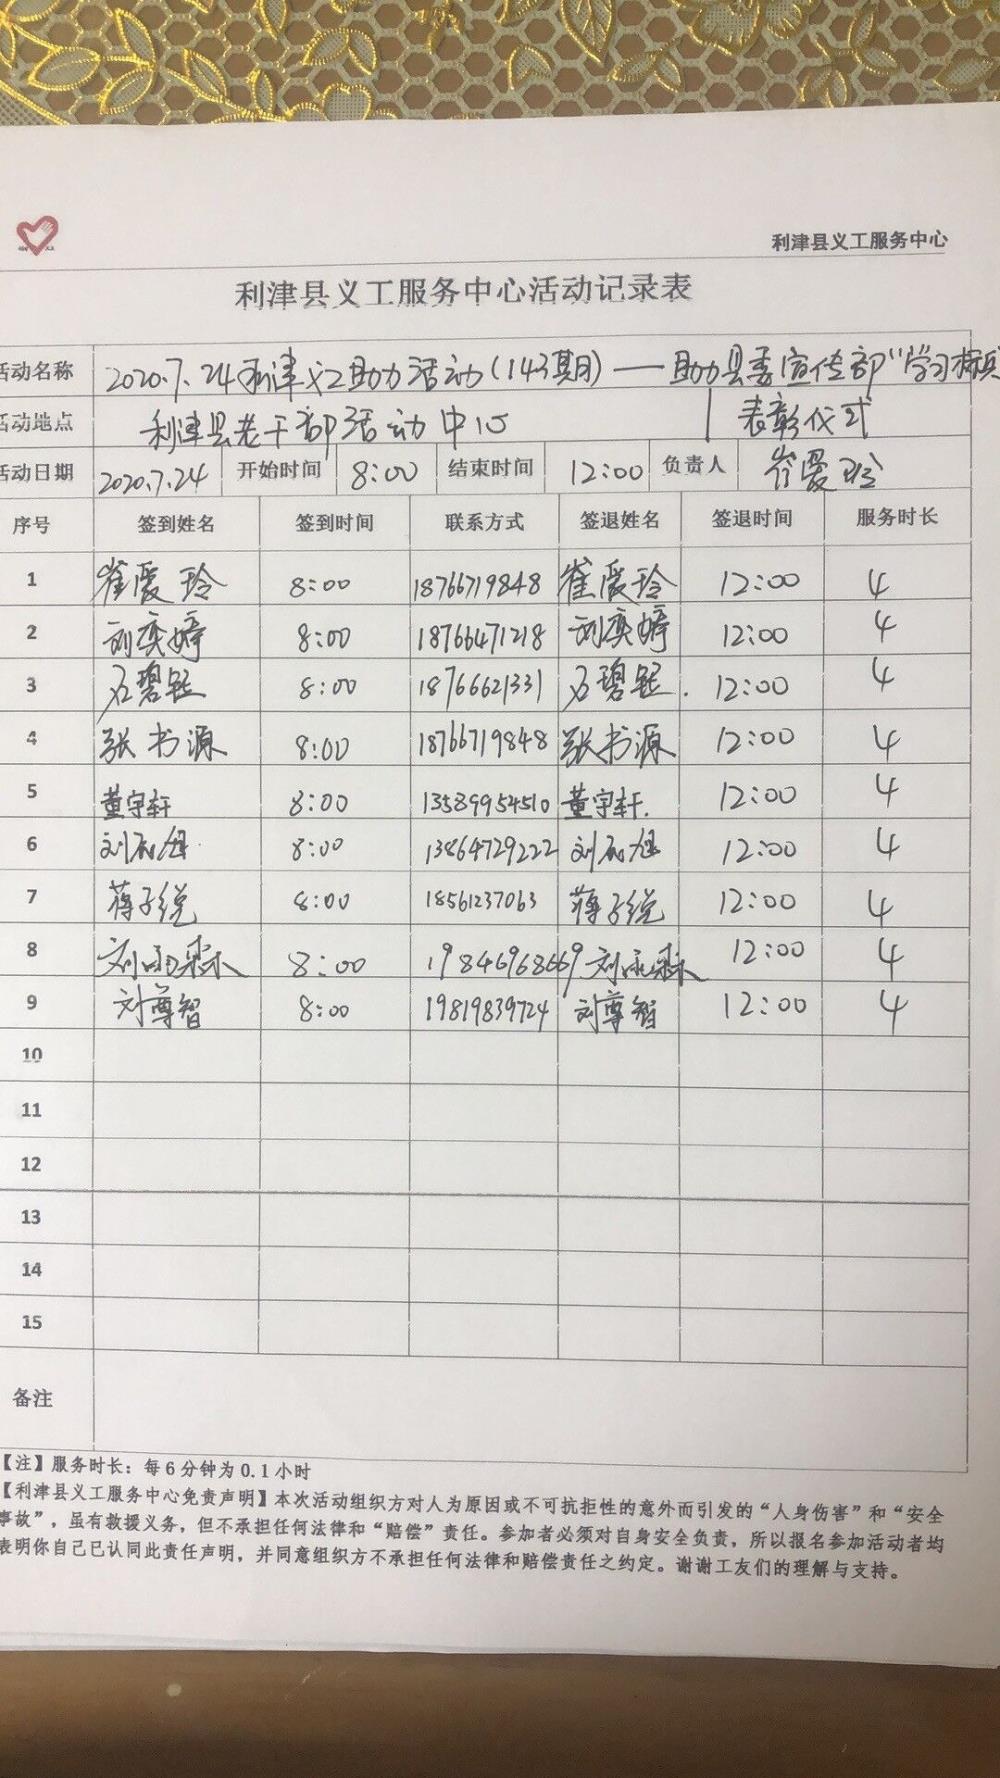 利津县义工服务中心
利津县义工服务中心活动记录表
活动名称 2020.7.24利津义工助力活动(143期)——助力县委宣传部"学习标兵
活动地点 利津县老干部活动中心 表彰仪式
活动日期 2020.7.24 开始时间 8:00 结束时间 12:00 负责人 崔爱玲
序号 签到姓名 签到时间 联系方式 签退姓名 签退时间 服务时长
1 崔爱玲 8:00 18766719848 崔爱玲 12:00 4
2 刘奕婷 8:00 18766471218 刘奕婷 12:00 4
3 8:00 18766621331 12:00 4
4 张书源 8:00 18766719848 张书源 12:00 4
5 董宇轩 8:00 13589954510 董宇轩. 12:00 4
6 8:00 13864729222 12:00 4
7 蒋子悦 8:00 18561237063 蒋子悦 12:00 4
8 8:00 19846968669 12:00 4
9 刘尊智 8:00 19819839724 刘尊智 12:00 4
10
11
12
13
14
15
备注
【注】服务时长：每6分钟为0.1小时
【利津县义工服务中心免责声明】本次活动组织方对人为原因或不可抗拒性的意外而引发的“人身伤害”和“安全
事故”，虽有救援义务，但不承担任何法律和“赔偿”责任。参加者必须对自身安全负责，所以报名参加活动者均
表明你自己已认同此责任声明，并同意组织方不承担任何法律和赔偿责任之约定。谢谢工友们的理解与支持。